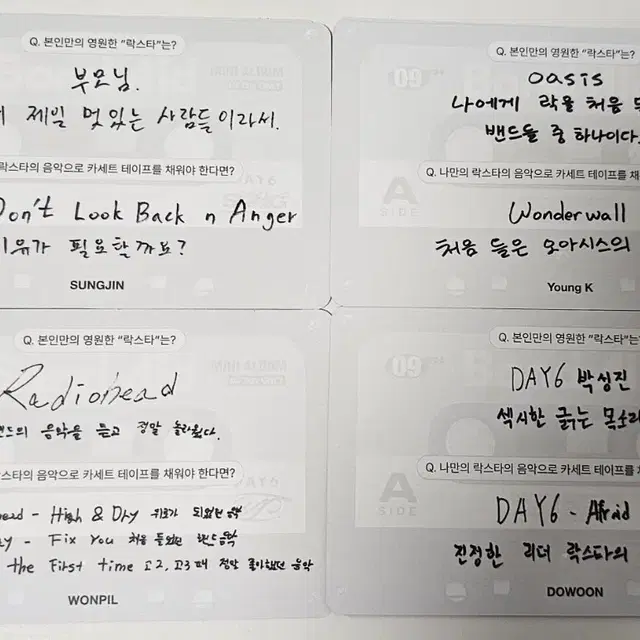 Q. 본인만의 영원한 "락스타"는?
부모님.
제일 멋있는 사람들이라서.
락스타의 음악으로 카세트 테이프를 채워야 한다면?
Don't Look Back n Anger
이유가 필요할까요?
SUNGJIN
Q. 본인만의 영원한 "락스타"는?
oasis
나에게 락을 처음
밴드들 중 하나이다.
Q. 나만의 락스타의 음악으로 카세트 테이프를 채
A
SIDE
Wonderwall
처음 들은 오아시스의
Young K
Q. 본인만의 영원한 "락스타"는?
Radiohead
밴드의 음악을 듣고 정말 놀라웠다.
락스타의 음악으로 카세트 테이프를 채워야 한다면?
head - High & Dry 위로가 되었던 음악
ay - Fix You 처음 들었던 밴드음악
the First time 고2, 고3 때 정말 좋아했던 음악
WONPIL
Q. 본인만의 영원한 "락스타"는?
DAY6 박성진
섹시한 긁는 목소리
Q. 나만의 락스타의 음악으로 카세트 테이프를
A
SIDE
DAY6 - Afraid
진정한 리더 락스타의
DOWOON